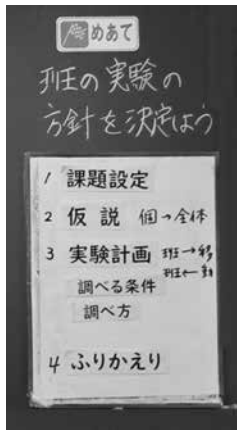 めあて
班の実験の
方針を決定しよう
1 課題設定
2 仮説 個→全体
3 実験計画 班→
班←
調べる条件
調べ方
4 ふりかえり